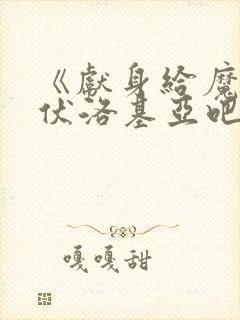 《獻身給魔
伏洛基亞吧
嘎嘎甜